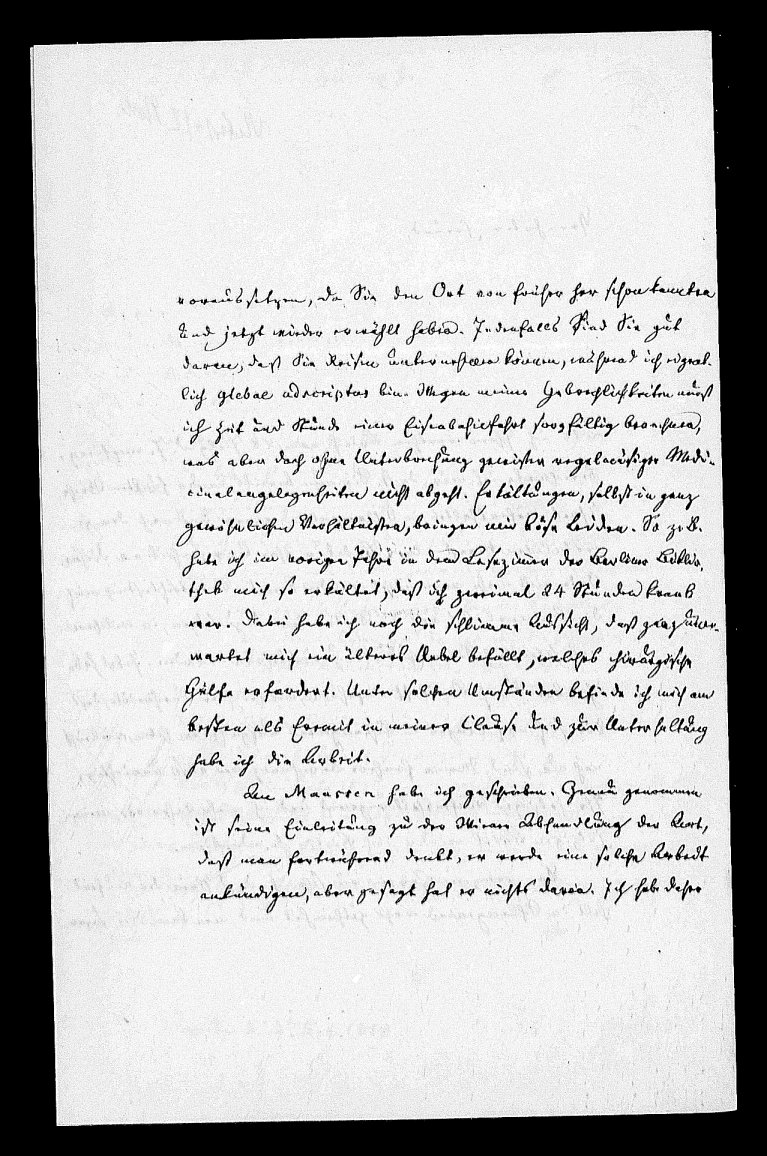 voraussetzen, da Sie den Ort von früher her schon kannten
und jetzt wieder erwählt haben. Jedenfalls sind Sie gut
daran, daß Sie Reisen unternehmen können, während ich eigent-
lich glebae adscriptus bin. Wegen meiner Gebrechlichkeiten muß
ich Zeit und Stunde einer Eisenbahnfahrt sorgfältig berechnen,
was aber doch ohne Unterbrechung gewisser regelmäßiger Medi-
cinalangelegenheiten nicht abgeht. Erkältungen, selbst in ganz
gewöhnlichen Verhältnissen, bringen mir böse Leiden. So z. B.
habe ich im vorigen Jahre in dem Lesezimmer der Berliner Biblio-
thek mich so erkältet, daß ich zweimal 24 Stunden krank
war. Dabei habe ich noch die schlimme Aussicht, daß ganz uner-
wartet mich ein älteres Uebel befällt, welches chirurgische
Hülfe erfordert. Unter solchen Umständen befinde ich mich am
besten als Eremit in meiner Clause und zur Unterhaltung
habe ich die Arbeit.
An Maassen habe ich geschrieben. Genau genommen
ist seine Einleitung zu der Wiener Abhandlung der Art,
daß man fortwährend denkt, er werde eine solche Arbeit
ankündigen, aber gesagt hat er nichts davon. Ich habe daher